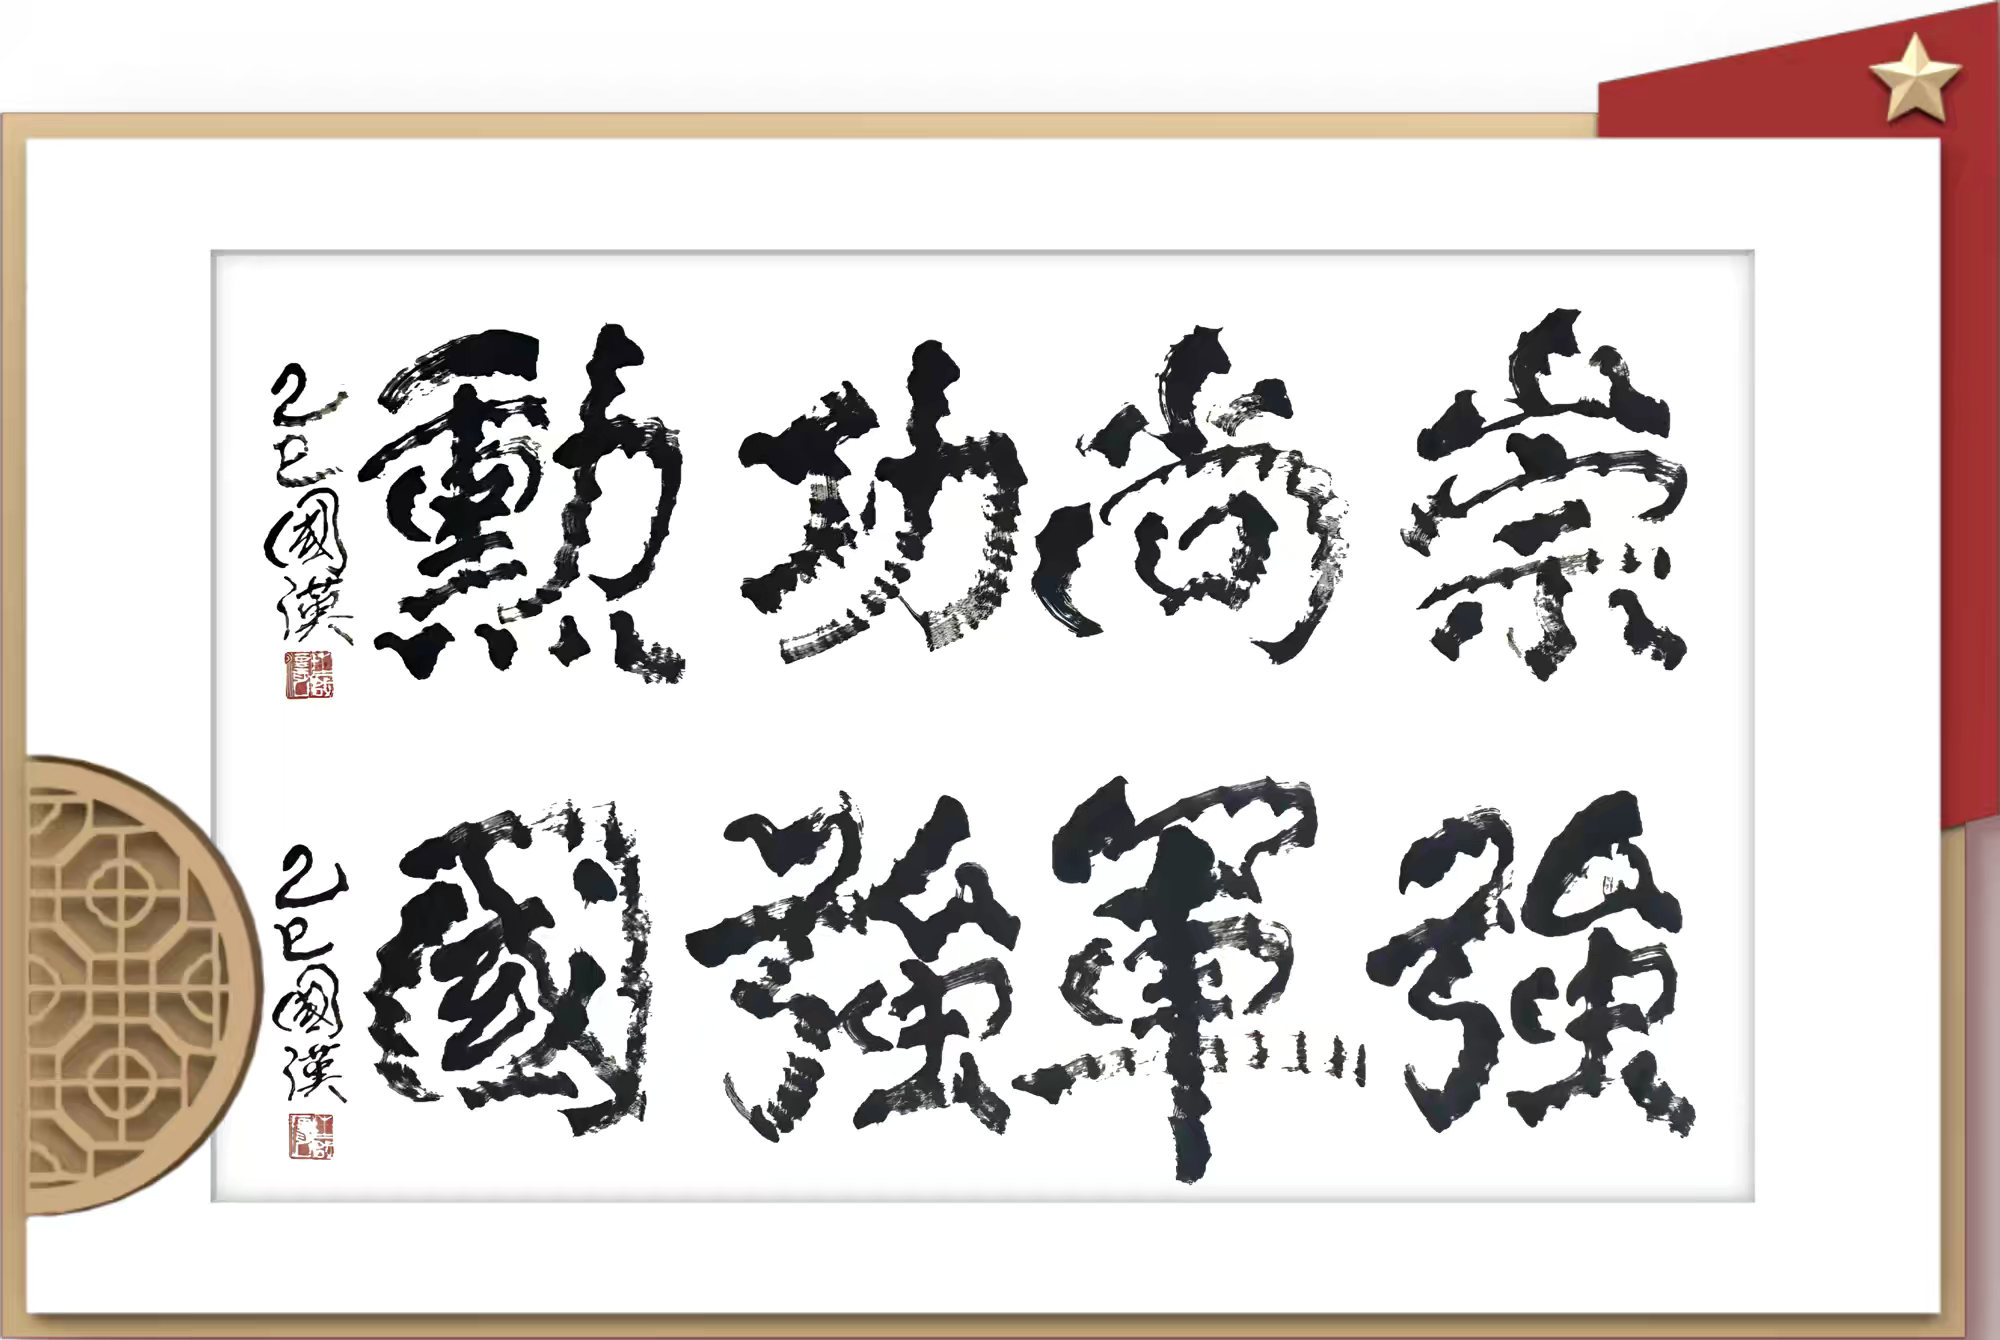 崇尚功勳
乙巳國漢
強軍強國
乙巳國漢